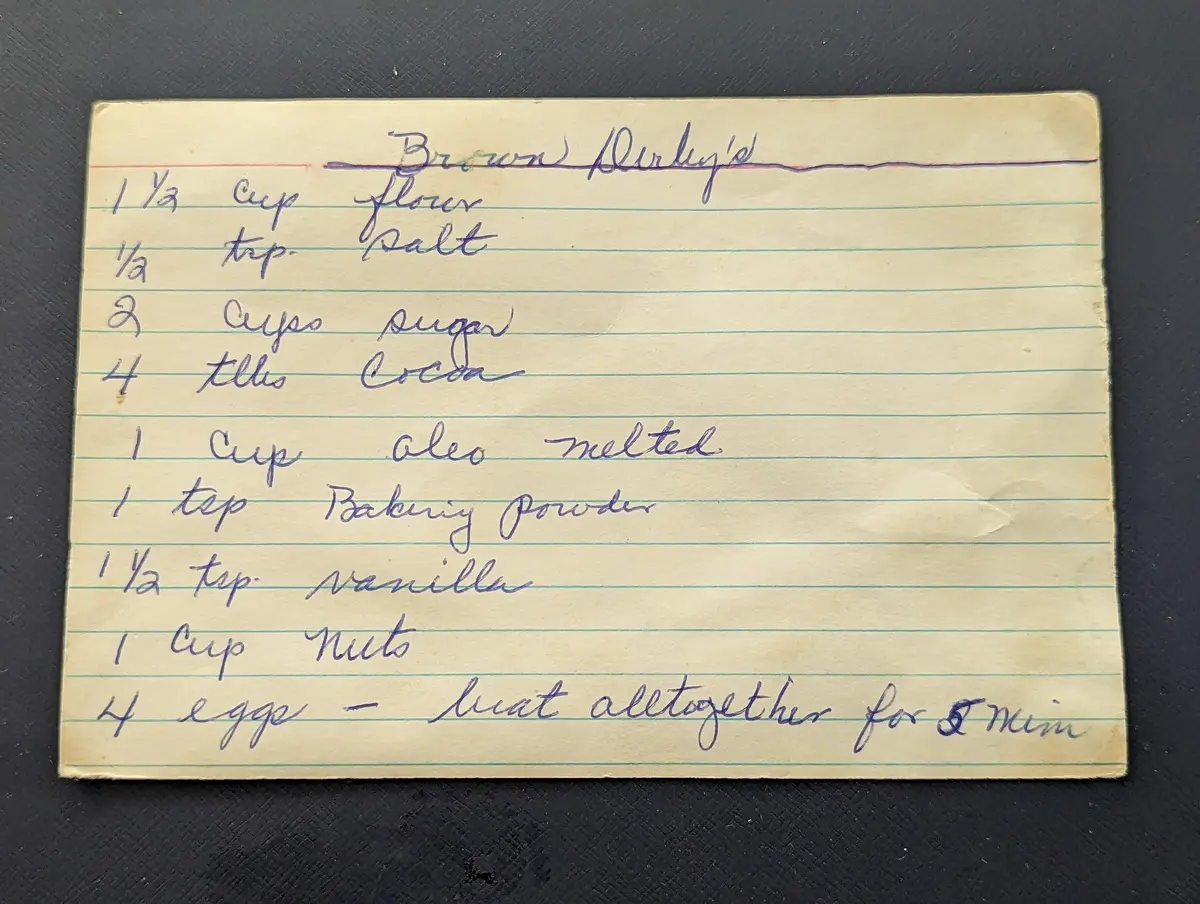 Brown Derby's
1 1/2 cup flour
1/2 tsp. salt
2 cups sugar
4 tlbs Cocoa
1 cup oleo melted
1 tsp Baking powder
1 1/2 tsp. vanilla
1 cup nuts
4 eggs — beat alltogether for 5 min